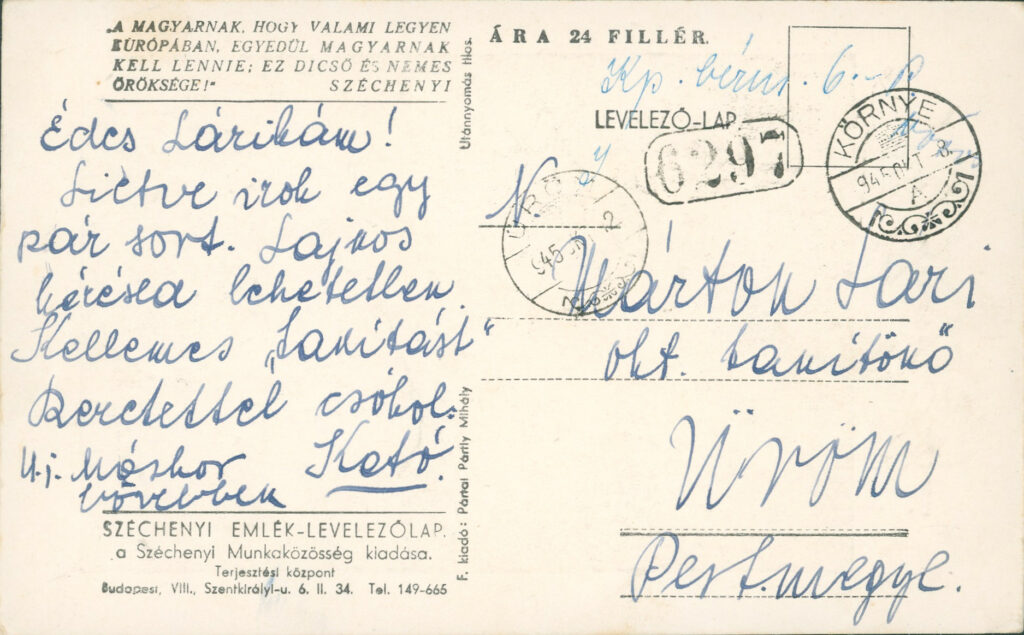 „A MAGYARNAK, HOGY VALAMI LEGYEN
EURÓPÁBAN, EGYEDÜL MAGYARNAK
KELL LENNIE; EZ DICSŐ ÉS NEMES
ÖRÖKSÉGE!" SZÉCHENYI
Édes Sárikám!
Sietve irok egy
pár sort. Lajnos
kérésea lehetetlen.
Kellemes „Tanitást"
Szeretettel csókol:
Kató.
U.i. Máskor
bővebben
SZÉCHENYI EMLÉK-LEVELEZŐLAP.
a Széchenyi Munkaközösség kiadása.
Terjesztési központ
Budapest, VIII., Szentkirályi-u. 6. II. 34. Tel. 149-665
Utánnyomás tilos.
F. kiadó: Pártai Pártly Mihály
ÁRA 24 FILLÉR.
Kp. bérm. 6.- P
LEVELEZŐ-LAP
6297
KÖRNYE
945 OKT
A
ÜRÖM
945
N.
Márton Sári
okl. tanítónő
Üröm
Pestmegye.